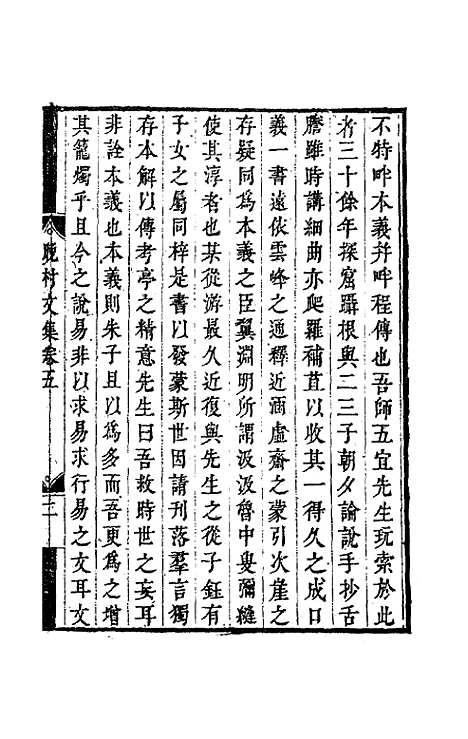 不特畔本義并畔程傳也吾師五宜先生玩索於此
者三十餘年探窟躡根與二三子朝夕論說手抄舌
膽雖時講細曲亦爬羅補苴以收其一得久之成口
義一書遠依雲峰之通釋近涵虛齋之蒙引次崖之
存疑同爲本義之臣翼淵明所謂汲汲魯中叟彌縫
使其淳者也某從游最久近復與先生之從子鈺有
子女之屬同梓是書以發蒙斯世因請刊落羣言獨
存本解以傳考亭之精意先生曰吾救時世之妄耳
非詮本義也本義則朱子且以爲多而吾更爲之增
其籠燭乎且今之說易非以求易求行易之文耳文
晚村文集卷五
二